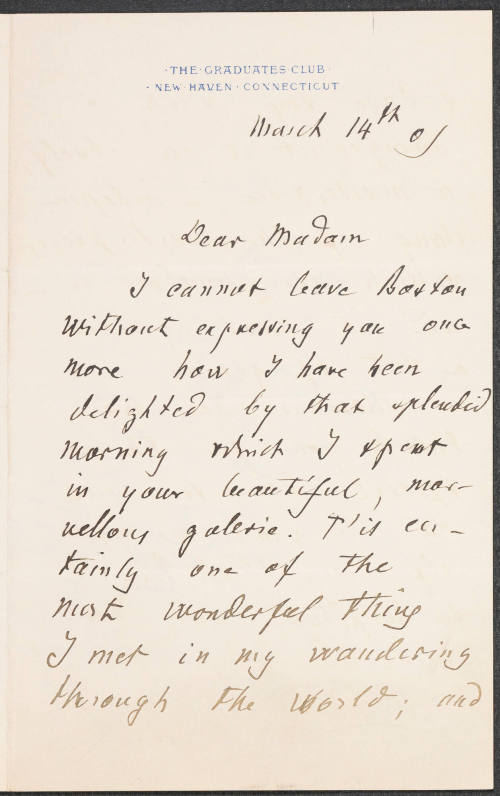 ·THE·GRADUATES·CLUB·
·NEW·HAVEN·CONNECTICUT
March 14th 05
Dear Madam
I cannot leave Boston
without expressing you once
more how I have been
delighted by that splendid
morning which I spent
in your beautiful, mar-
vellous galerie. T'is cer-
tainly one of the
most wonderful thing
I met in my wandering
through the world; and